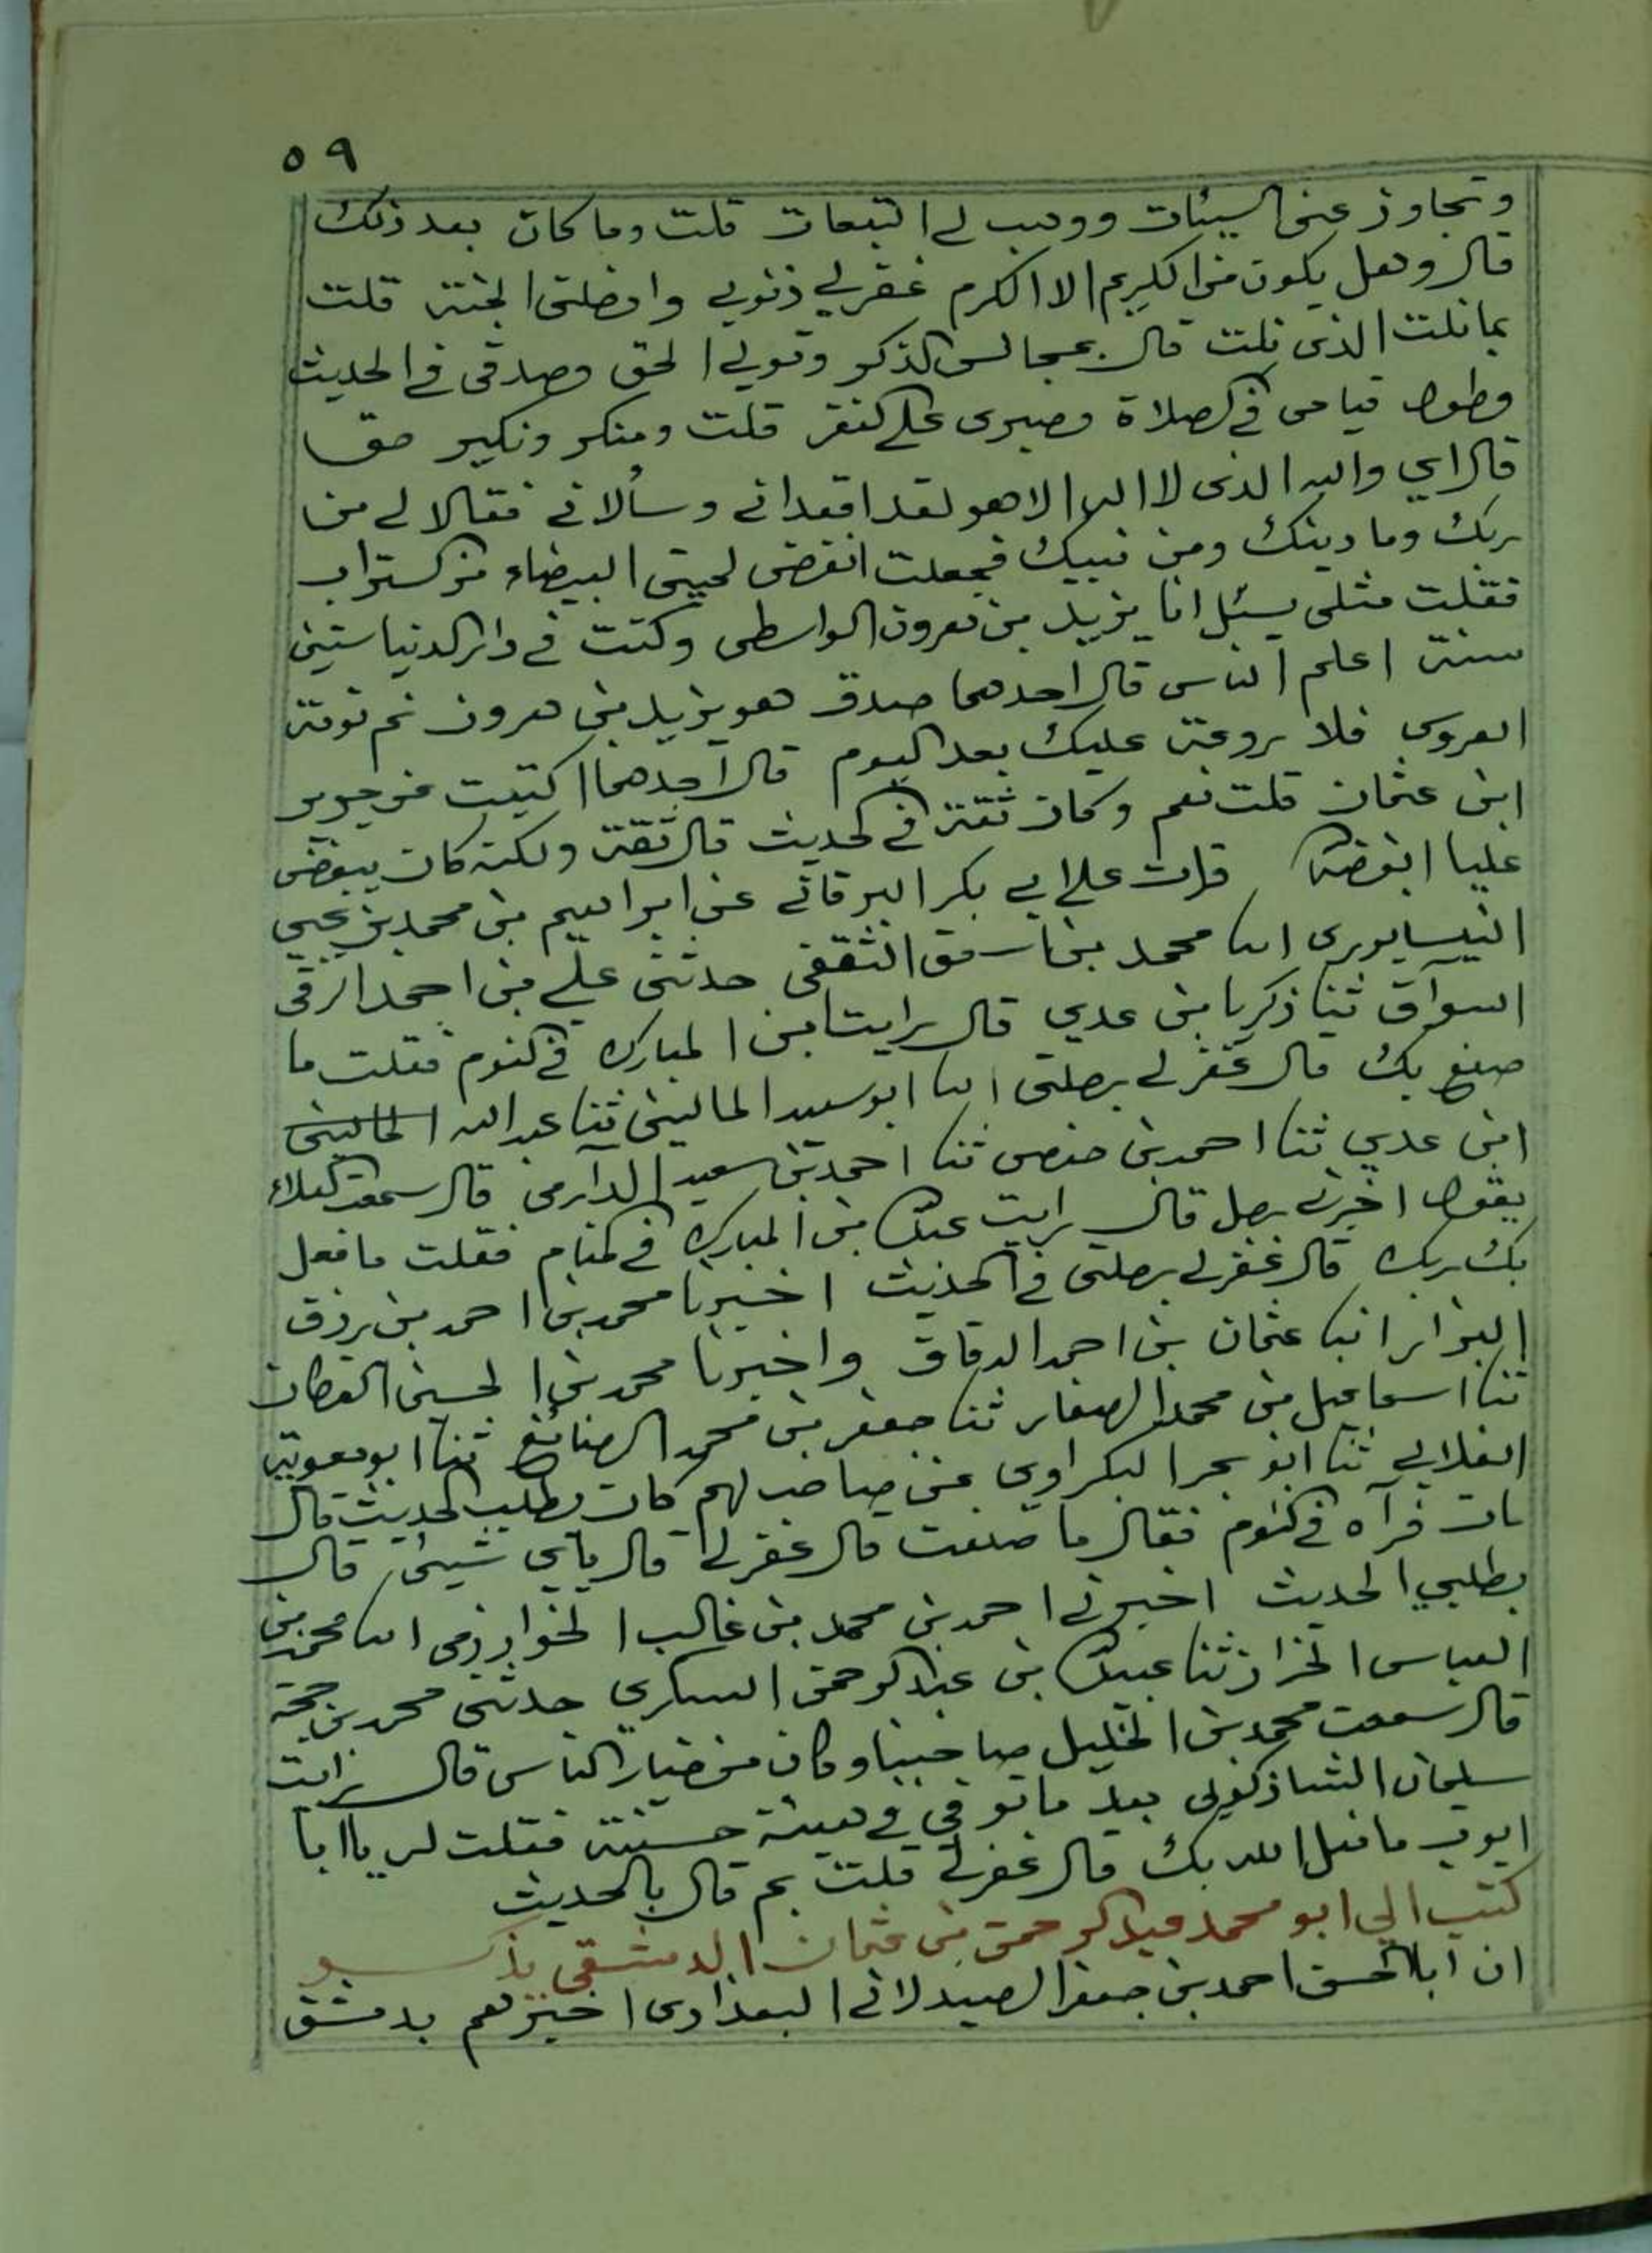 ٥٩
وتجاوز عني السيئات ووهب لي التبعات قلت وما كان بعد ذلك
قال وهل يكون من الكريم الا الكرم غفر لي ذنوبي وادخلني الجنة قلت
بما نلت الذي نلت قال بمجالس الذكر وقولي الحق وصدقي في الحديث
وطول قيامي في الصلاة وصبري على الفقر قلت ومنكر ونكير حق
قال اي والله الذي لا اله الا هو لقد اقعداني وسألاني فقالا لي من
ربك وما دينك ومن نبيك فجعلت انفض لحيتي البيضاء من التراب
فقلت مثلي يسئل انا يزيد بن هرون الواسطي وكنت في دار الدنيا ستين
سنة اعلم الناس قال احدهما صدق هو يزيد بن هرون نم نومة
العروس فلا روعة عليك بعد اليوم قال احدهما اكتبت عن جرير
ابن عثمان قلت نعم وكان ثقة في الحديث قال ثقة ولكنه كان يبغض
عليا ابغضه الله قرات على ابي بكر البرقاني عن ابراهيم بن محمد بن يحيى
النيسابوري انا محمد بن اسحق الثقفي حدثني علي بن احمد الرقي
السواق ثنا زكريا بن عدي قال رايت ابن المبارك في النوم فقلت ما
صنع بك قال غفر لي برحلتي انا ابو سعيد الماليني ثنا عبد الله الماليني
ابن عدي ثنا احمد بن حفص ثنا احمد بن سعيد الدارمي قال سمعت العلاء
يقول اخبرني رجل قال رايت عبد الله بن المبارك في المنام فقلت ما فعل
بك ربك قال غفر لي برحلتي في الحديث اخبرنا محمد بن احمد بن رزق
البزاز انبا عثمان بن احمد الدقاق واخبرنا محمد بن الحسين القطان
ثنا اسماعيل بن محمد الصفار ثنا جعفر بن محمد الصائغ ثنا ابو معوية
الغلابي ثنا ابو بحر البكراوي عن صاحب لهم كان يطلب الحديث قال
مات فرآه في النوم فقال ما صنعت قال غفر لي قال باي شيئ قال
بطلبي الحديث اخبرني احمد بن محمد بن غالب الخوارزمي انا محمد بن
العباس الخزاز ثنا عبيد الله بن عبد الرحمن السكري حدثني محمد بن
قال سمعت محمد بن الخليل صاحبنا وكان من خيار الناس قال رايت
سليمان الشاذكوني بعد ما توفي في هيئة حسنة فقلت له يا ابا
ايوب ما فعل الله بك قال غفر لي قلت بم قال بالحديث
كتب الي ابو محمد عبد الرحمن بن عثمان الدمشقي يذكر
ان ابا الحسن احمد بن جعفر الصيدلاني البغدادي اخبرهم بدمشق